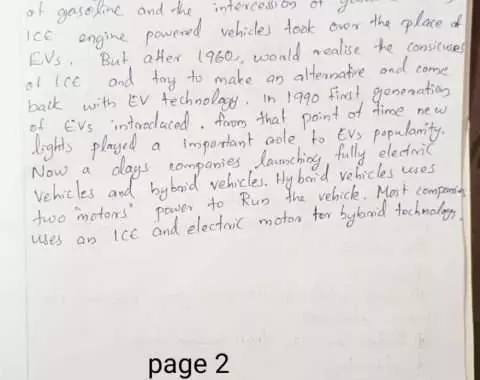 of gasoline and the intercession of
ICE engine powered vehicles took over the place of
EVs. But after 1960s, world realise the
of ICE and try to make an alternative and come
back with EV technology. In 1990 first generation
of EVs introduced. from that point of time new
lights played a important role to EVs popularity.
Now a days companies launching fully electric
vehicles and hybrid vehicles. Hybrid vehicles uses
two "motors" power to Run the vehicle. Most companies
uses an ICE and electric motor for hybrid technology.
page 2